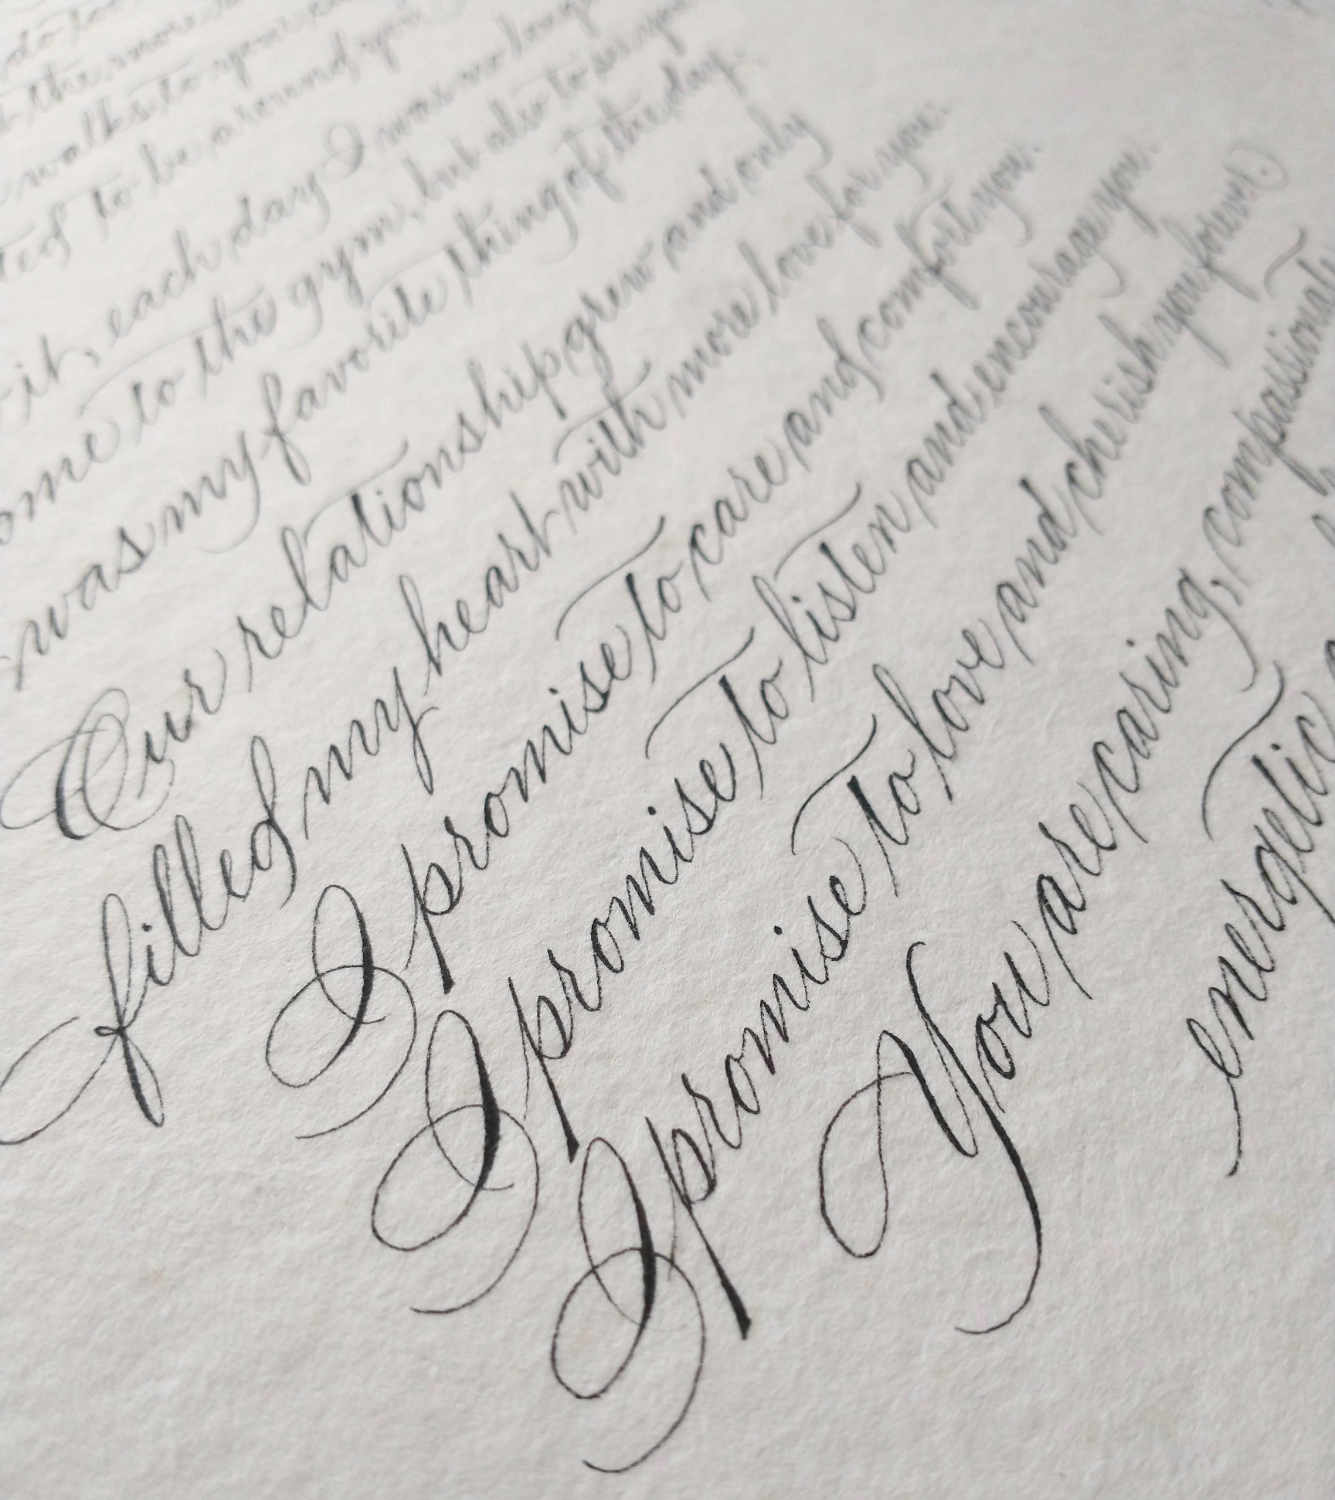 the more
walks to your
to be around you
it, each day I was no longer
to the gym, but also to see you
was my favorite thing of the day.
Our relationship grew and only
filled my heart with more love for you.
I promise to care and comfort you.
I promise to listen and encourage you.
I promise to love and cherish you forever.
You are caring, compassionate
energetic